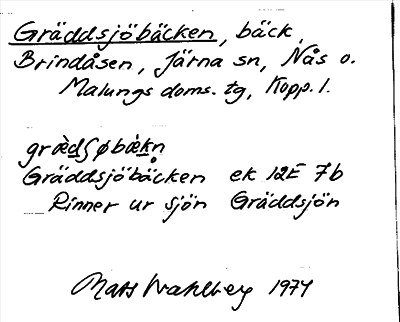 Gräddsjöbäcken, bäck,
Brindåsen, Järna sn, Nås o.
Malungs doms. tg, Kopp. l.
græ̀dʃøbæ̀kn
Gräddsjöbäcken ek 12E 7b
Rinner ur sjön Gräddsjön
Mats Wahlberg 1974